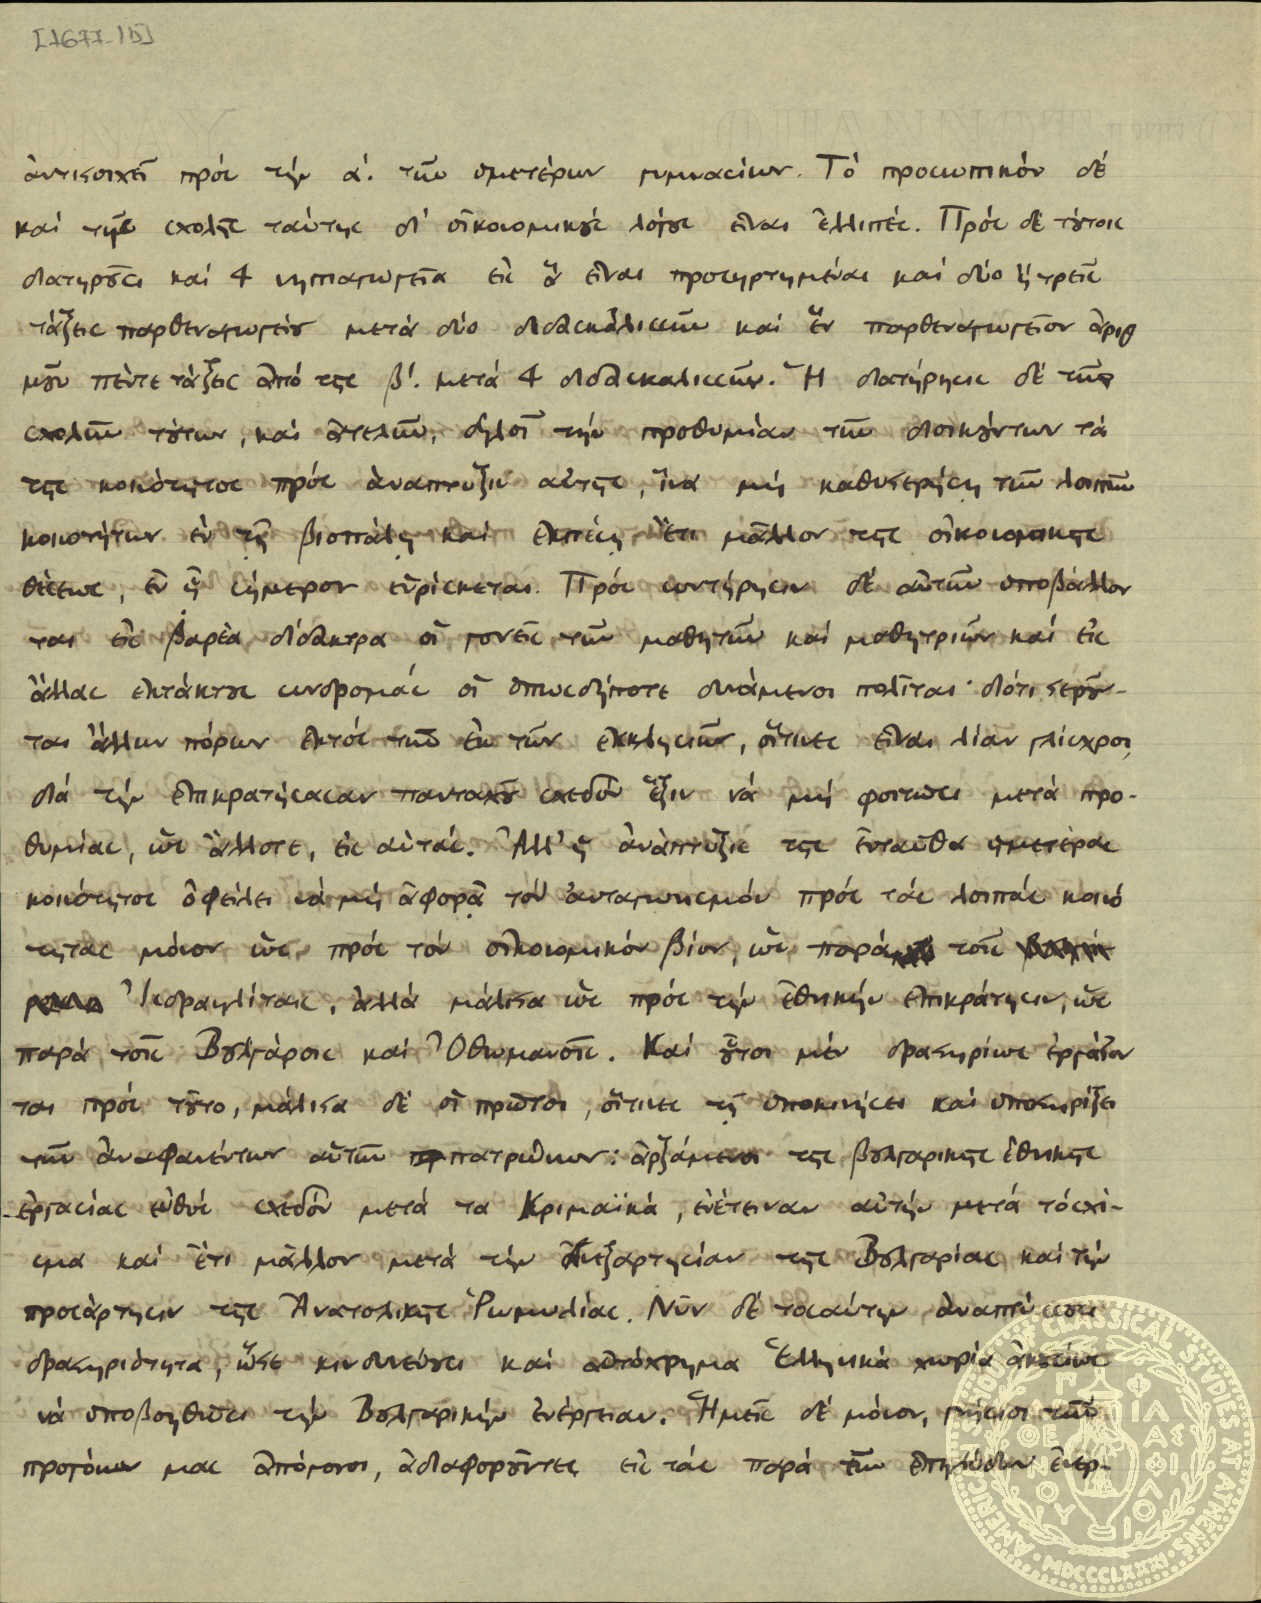 [1677-15]
ἀντιστοιχεῖ πρὸς τὴν α΄. τῶν ὑμετέρων γυμνασίων. Τὸ προσωπικὸν δὲ
καὶ τῆς σχολῆς ταύτης δι' οἰκονομικοὺς λόγους εἶναι ἐλλιπές. Πρὸς δὲ τούτοις
διατηροῦσι καὶ 4 νηπιαγωγεῖα εἰς ἃ εἶναι προσηρτημέναι καὶ δύο ἢ τρεῖς
τάξεις παρθεναγωγείου μετὰ δύο διδασκαλισσῶν καὶ ἓν παρθεναγωγεῖον ἀριθ
μοῦν πέντε τάξεις ἀπὸ τῆς β΄. μετὰ 4 διδασκαλισσῶν. Ἡ διατήρησις δὲ τῶν
σχολῶν τούτων, καὶ ἀτελῶν, δηλοῖ τὴν προθυμίαν τῶν διοικούντων τὰ
τῆς κοινότητος πρὸς ἀνάπτυξιν αὐτῆς, ἵνα μὴ καθυστερήσῃ τῶν λοιπῶν
κοινοτήτων ἐν τῇ βιοπάλῃ καὶ ἐκπέσῃ ἔτι μᾶλλον τῆς οἰκονομικῆς
θέσεως, ἐν ᾗ σήμερον εὑρίσκεται. Πρὸς συντήρησιν δὲ αὐτῶν ὑποβάλλον
ται εἰς βαρέα δίδακτρα οἱ γονεῖς τῶν μαθητῶν καὶ μαθητριῶν καὶ εἰς
ἄλλας ἐκτάκτους συνδρομὰς οἱ ὁπωσδήποτε δυνάμενοι πολῖται· διότι στεροῦν-
ται ἄλλων πόρων ἐκτὸς τῶν ἐκ τῶν ἐκκλησιῶν, οἵτινες εἶναι λίαν γλίσχροι,
διὰ τὴν ἐπικρατήσασαν πανταχοῦ σχεδὸν ἕξιν νὰ μὴ φοιτῶσι μετὰ προ-
θυμίας, ὡς ἄλλοτε, εἰς αὐτάς. Ἀλλ' ἡ ἀνάπτυξις τῆς ἐνταῦθα ἡμετέρας
κοινότητος ὀφείλει νὰ μὴ ἀφορᾷ τὸν ἀνταγωνισμὸν πρὸς τὰς λοιπὰς κοινό
τητας μόνον ὡς πρὸς τὸν οἰκονομικὸν βίον, ὡς παρὰ τοῖς
Ἰσραηλίταις, ἀλλὰ μάλιστα ὡς πρὸς τὴν ἐθνικὴν ἐπικράτησιν, ὡς
παρὰ τοῖς Βουλγάροις καὶ Ὀθωμανοῖς. Καὶ οὗτοι μὲν δραστηρίως ἐργάζον
ται πρὸς τοῦτο, μάλιστα δὲ οἱ πρῶτοι, οἵτινες τῇ ὑποκινήσει καὶ ὑποστηρίξει
τῶν ἀναφανέντων αὐτῶν πατρώνων: ἀρξάμενοι τῆς βουλγαρικῆς ἐθνικῆς
ἐργασίας εὐθὺς σχεδὸν μετὰ τα Κριμαϊκά, ἐνέτειναν αὐτὴν μετὰ τὸ σχί-
σμα καὶ ἔτι μᾶλλον μετὰ τὴν Ἀνεξαρτησίαν τῆς Βουλγαρίας καὶ τὴν
προσάρτησιν τῆς Ἀνατολικῆς Ῥωμυλίας. Νῦν δὲ τοσαύτην ἀναπτύσσουσι
δραστηριότητα, ὥστε κινδυνεύουσι καὶ ἀπόχρημα Ἑλληνικὰ χωρία ἀκουσίως
νὰ ὑποβοηθῶσι τὴν Βουλγαρικὴν ἐνέργειαν. Ἡμεῖς δὲ μόνον, γνήσιοι τῶν
προγόνων μας ἀπόγονοι, ἀδιαφοροῦντες εἰς τὰς παρὰ τῶν ἐπηλύδων ἐνερ-
AMERICAN SCHOOL OF CLASSICAL STUDIES AT ATHENS · MDCCCLXXXI ·